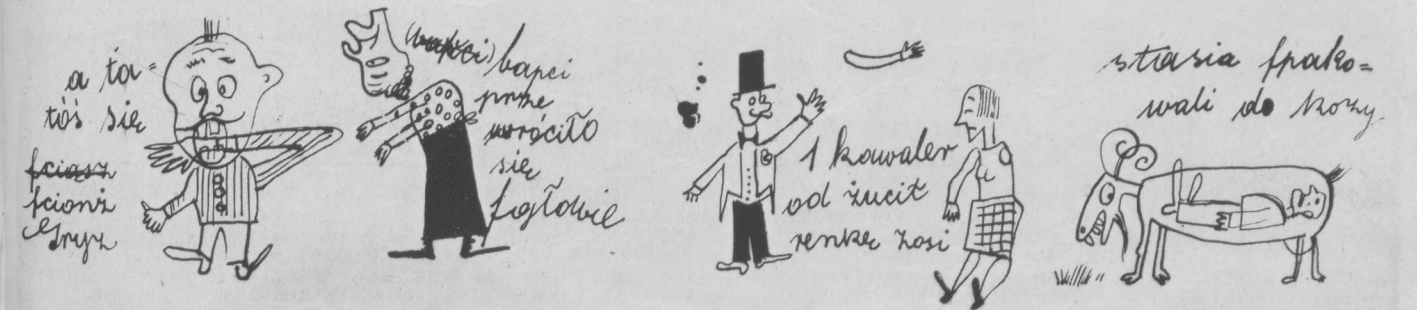 a ta=
tóś się
fciąsz
fcionż
Gryz
(bapci) bapci
prze
wróciło
się
fogłowie
1 kawaler
od żucił
renkę zosi
stasia fpako=
wali do kozy.